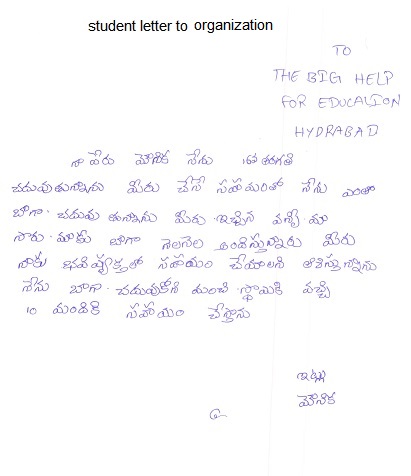 student letter to organization
TO
THE BIG HELP
FOR EDUCATION
HYDRABAD
నా పేరు మౌనిక నేను తరగతి
చదువుతున్నాను మీరు చేసే సహయంతో నేను ఎంతో
బాగా చదువు తున్నాను మీరు ఇచ్చిన మా
సారు మాకు బాగా నెలనెల అందిస్తున్నారు మీరు
నాకు సహాయం చేయాలని ఆశిస్తున్నాను
నేను బాగా చదువుకోని మంచి స్థాయికి వచ్చి
10 మందికి సహాయం చేస్తాను
ఇట్లు
మౌనిక